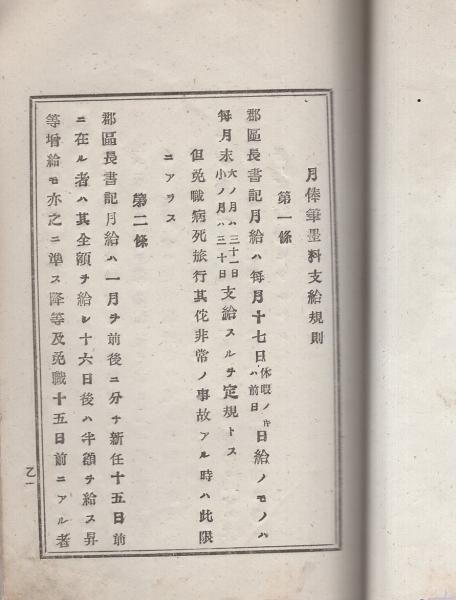 月俸筆墨料支給規則
第一條
郡區長書記月給ハ每月十七日休暇ノ片ハ前日日給ノモノハ
每月末大ノ月ハ三十一日小ノ月ハ三十日支給スルヲ定規トス
但免職病死旅行其侘非常ノ事故アル時ハ此限
ニアラス
第二條
郡區長書記月給ハ一月ヲ前後ニ分チ新任十五日前
ニ在ル者ハ其全額ヲ給シ十六日後ハ半額ヲ給ス昇
等增給モ亦之ニ準ス降等及免職十五日前ニアル者
乙一